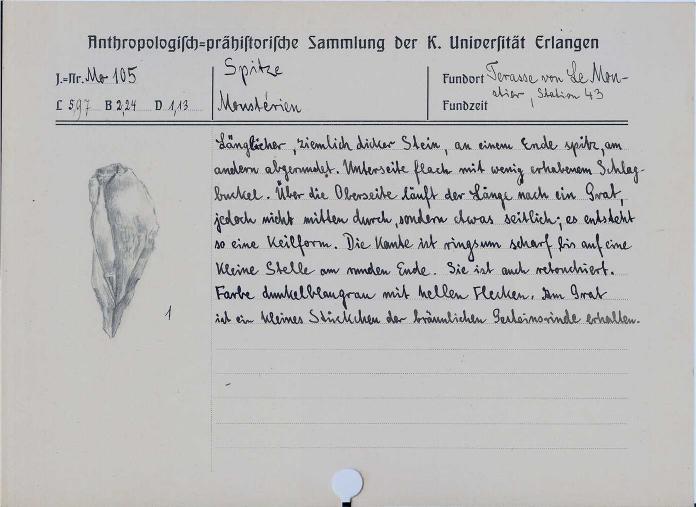 Anthropologisch=prähistorische Sammlung der K. Universität Erlangen
J.=Nr. Mo 105
Spitze
Fundort Terasse von Le Mon-
stier, Station 43
L 5,97 B 2,24 D 1,13
Monstérien
Fundzeit
Länglicher, ziemlich dicker Stein, an einem Ende spitz, am
andern abgerundet. Unterseite flach mit wenig erhabenem Schlag-
buckel. Über die Oberseite läuft der Länge nach ein Grat,
jedoch nicht mitten durch, sondern etwas seitlich; es entsteht
so eine Keilform. Die Kante ist ringsum scharf bis auf eine
kleine Stelle am runden Ende. Sie ist auch retouchiert.
Farbe dunkelblaugrau mit hellen Flecken. Am Grat
ist ein kleines Stückchen der bräunlichen Gesteinsrinde erhalten.
1